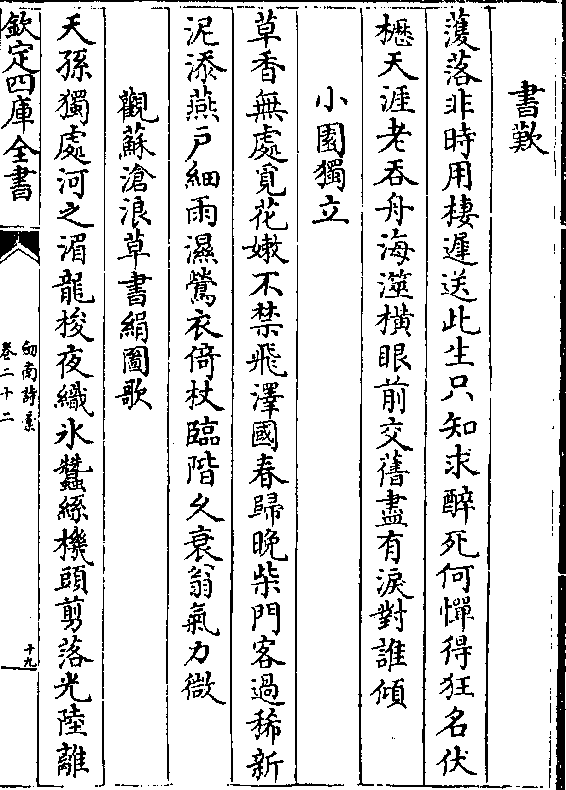 書歎
濩落非時用棲遲送此生只知求醉死何憚得狂名伏
櫪天涯老吞舟海澨橫眼前交舊盡有淚對誰傾
小園獨立
草香無處覓花嫩不禁飛澤國春歸晚柴門客過稀新
泥添燕戸細雨濕鶯衣倚杖臨階久衰翁氣力微
觀蘇滄浪草書絹圖歌
天孫獨處河之湄龍梭夜織氷蠶絲機頭剪落光陸離
欽定四庫全書
劒南詩槀
卷二十二
十九